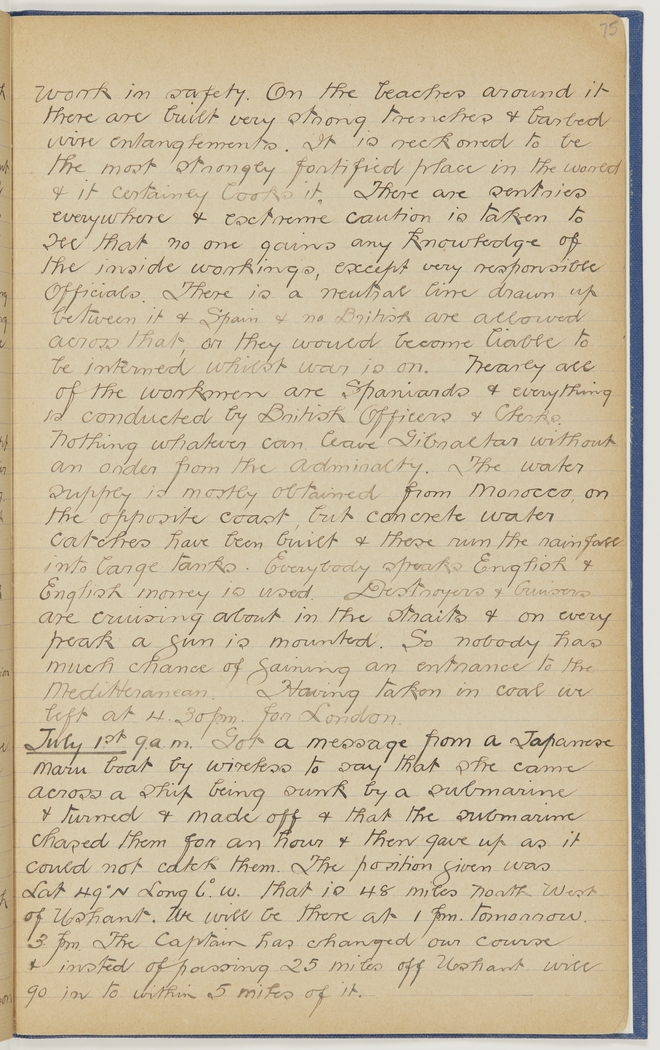 75
work in safety. On the beaches around it
there are built very strong trenches & barbed
wire entanglements. It is reckoned to be
the most strongly fortified place in the world
& it certainly looks it. There are sentries
everywhere & esctreme caution is taken to
see that no one gains any knowledge of
the inside workings, escept very responsible
Officials. There is a neutral line drawn up
between it & Spain & no British are allowed
across that, or they would become liable to
be interned whilst war is on. Nearly all
of the workmen are Spaniards & everything
is conducted by British Officers & Clerks.
Nothing whatever can leave Gibraltar without
an order from the Admiralty. The water
supply is mostly obtained from Morocco, on
the opposite coast, but concrete water
catches have been built & these run the rainfall
into large tanks. Everybody speaks English &
English money is used. Destroyers & Cruisers
are cruising about in the straits & on every
peak a gun is mounted. So nobody has
much chance of gaining an entrance to the
Mediterranean. Having taken in coal we
left at 4.30pm. for London.
July 1st 9a.m. Got a message from a Japanese
maru boat by wireless to say that she came
across a ship being sunk by a submarine
& turned & made off & that the submarine
chased them for an hour & then gave up as it
could not catch them. The position given was
Lat 49°N Long 6°.w. that is 48 miles North West
of Ushant. We will be there at 1 pm. tomorrow.
3 pm The Captain has changed our course
& insted of passing 25 miles off Ushant will
go in to within 5 miles of it.